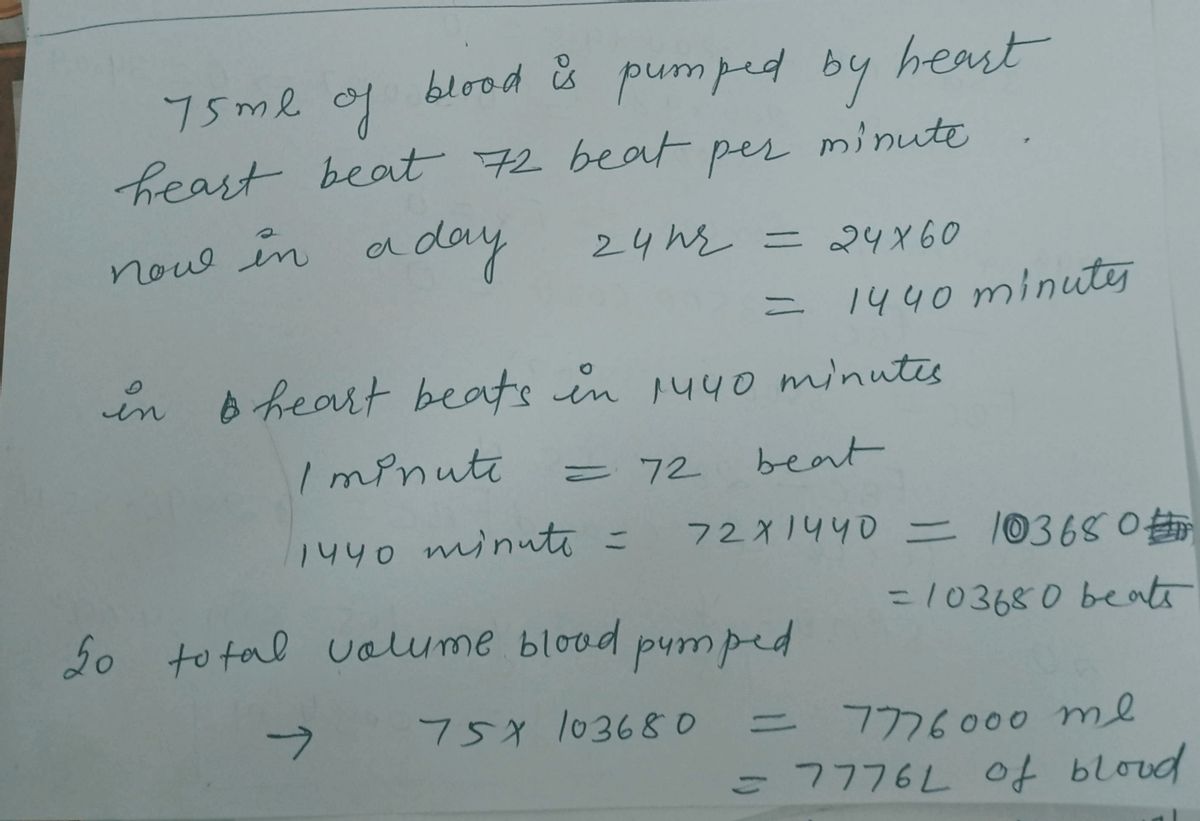 75ml of blood is pumped by heart
heart beat 72 beat per minute .
now in a day 24 hr = 24x60
= 1440 minutes
in heart beats in 1440 minutes
1 minute = 72 beat
1440 minute = 72 x 1440 = 103680
= 103680 beats
So total volume blood pumped
→ 75 x 103680 = 7776000 ml
= 7776L of blood